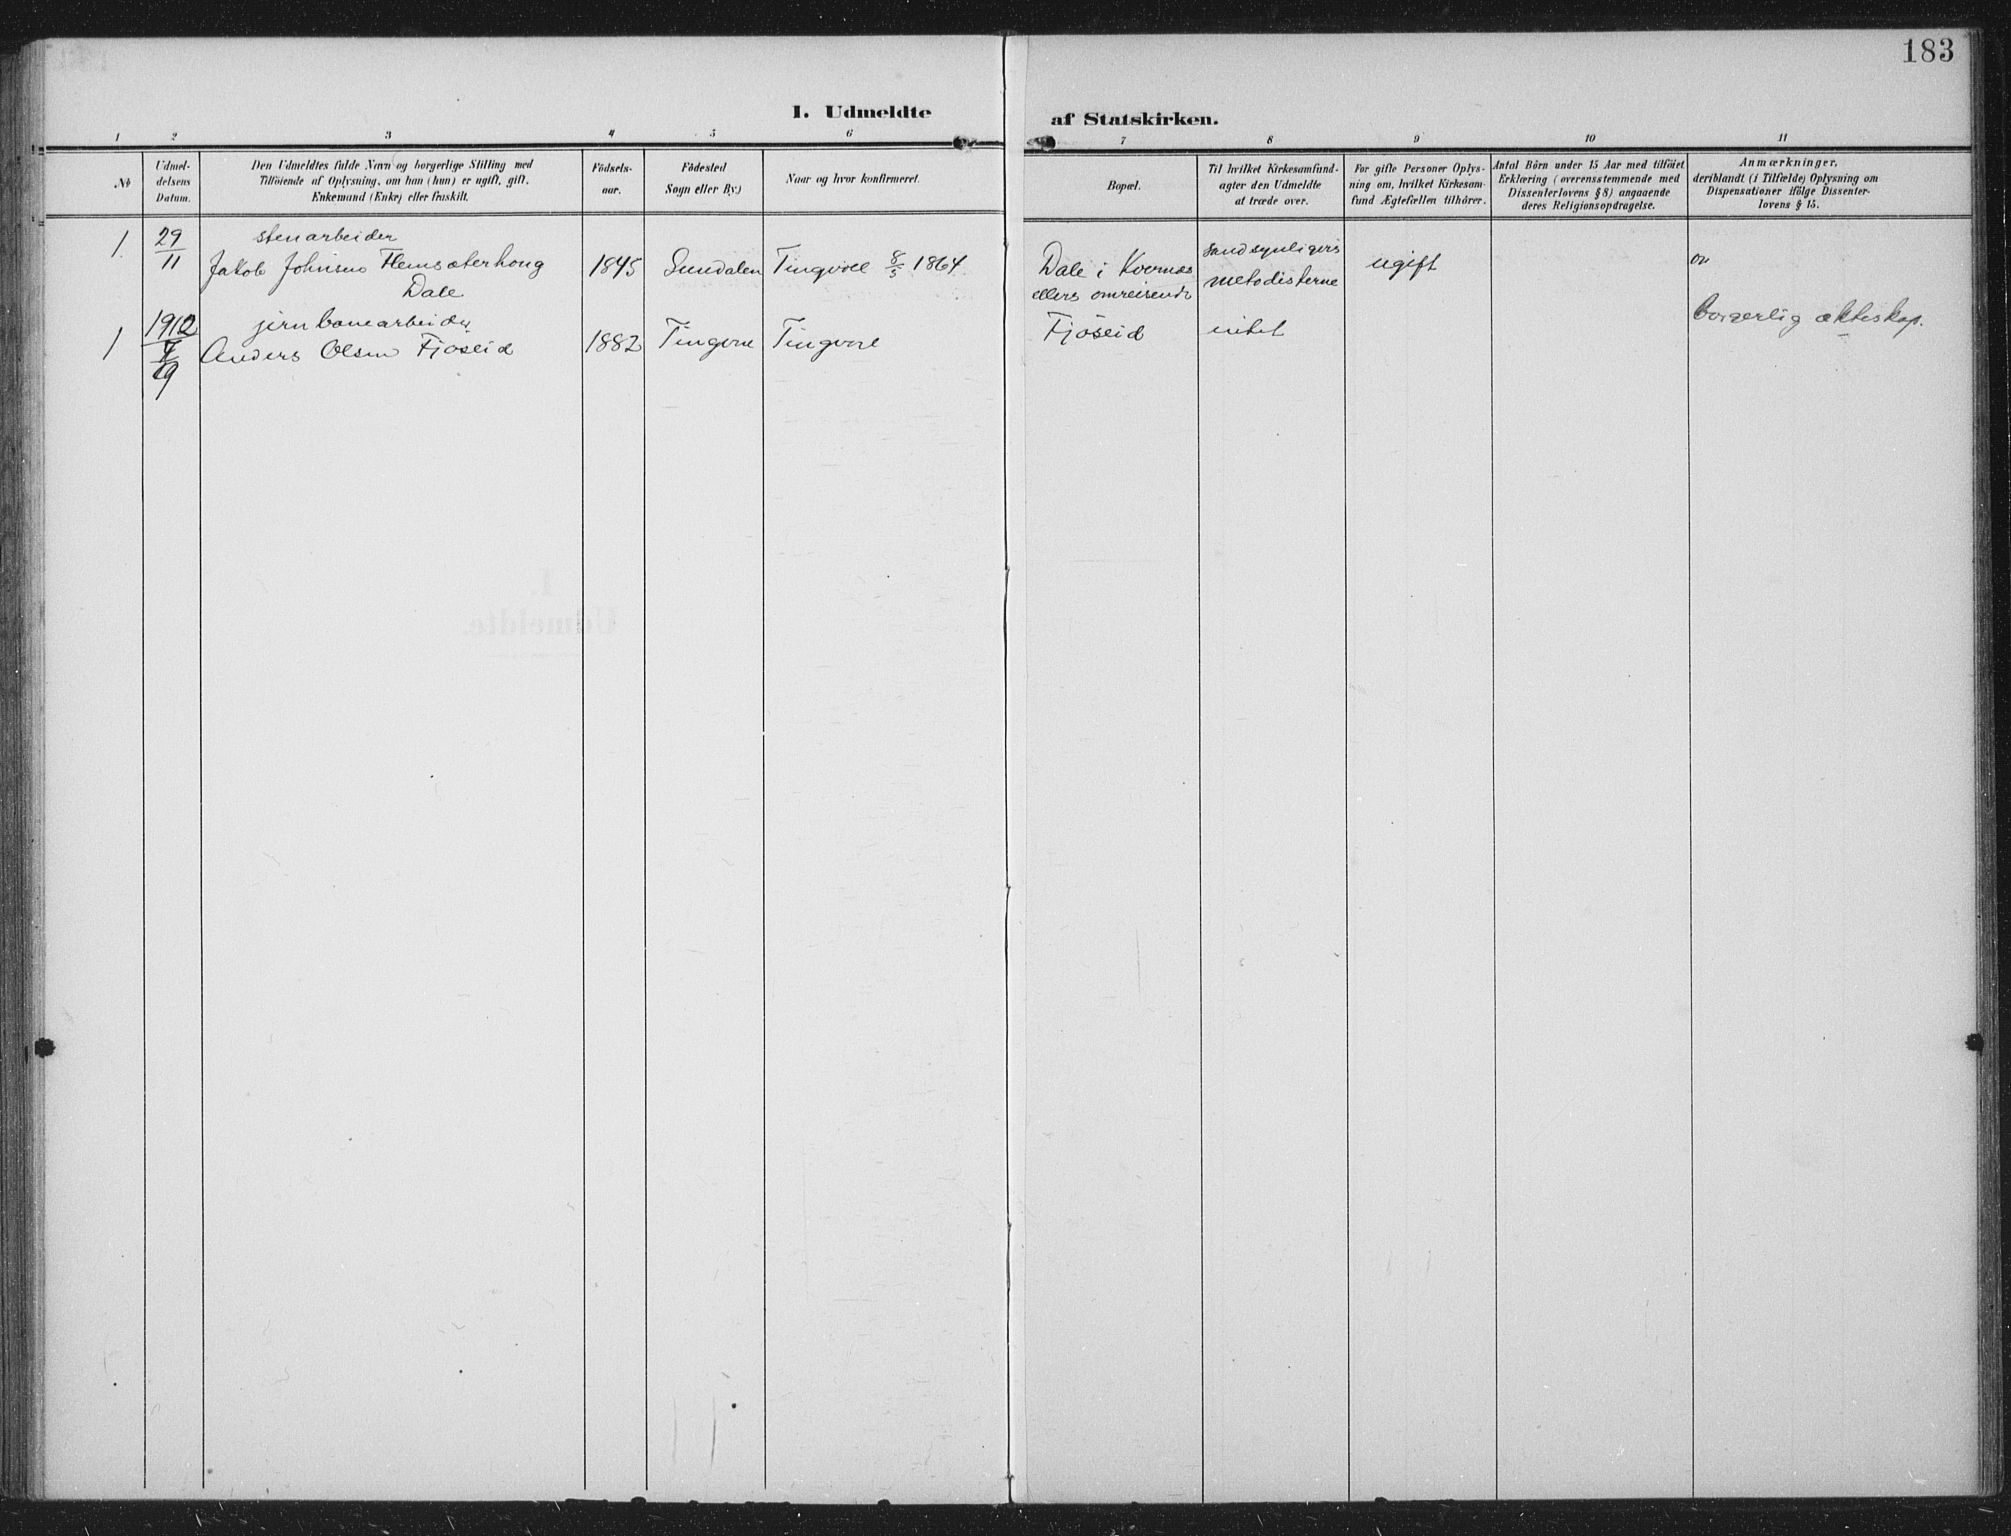 183
1. Udmeldte af Statskirken.
1 2 3 4 5 6 7 8 9 10 11
No
Udmel-
delsens
Datum.
Den Udmeldtes fulde Navn og borgerlige Stilling med
Tilföiende af Oplysning, om han (hun) er ugift, gift,
Enkemand (Enke) eller fraskilt.
Födsels-
aar.
Födested
Sogn eller By.)
Naar og hvor konfirmeret.
Bopæl.
Til hvilket Kirkesamfund-
agter den Udmeldte
at træde over.
For gifte Personer Oplys-
ning om, hvilket Kirkesam-
fund Ægtefællen tilhörer.
Antal Börn under 15 Aar med tilföiet
Erklæring (overensstemmende med
Dissenterlovens § 8) angaaende
deres Religionsopdragelse.
Anmærkninger,
deriblandt (i Tilfælde) Oplysning om
Dispensationer ifölge Dissenter-
lovens § 15.
1. 29/11
stenarbeider
Jakob Johnsen Flemsæterhoug
Dale
1845
Sundalen
Tingvoll 8/5 1864
Dale i Kvernæs
ellers omreisende
sandsynligvis
metodisterne
ugift
1
1912
7/9
jernbanearbeider
Anders Olsen Fjøseid
1882
Tingvoll
Tingvoll
Fjöseid
intet
borgerlig ekteskap.